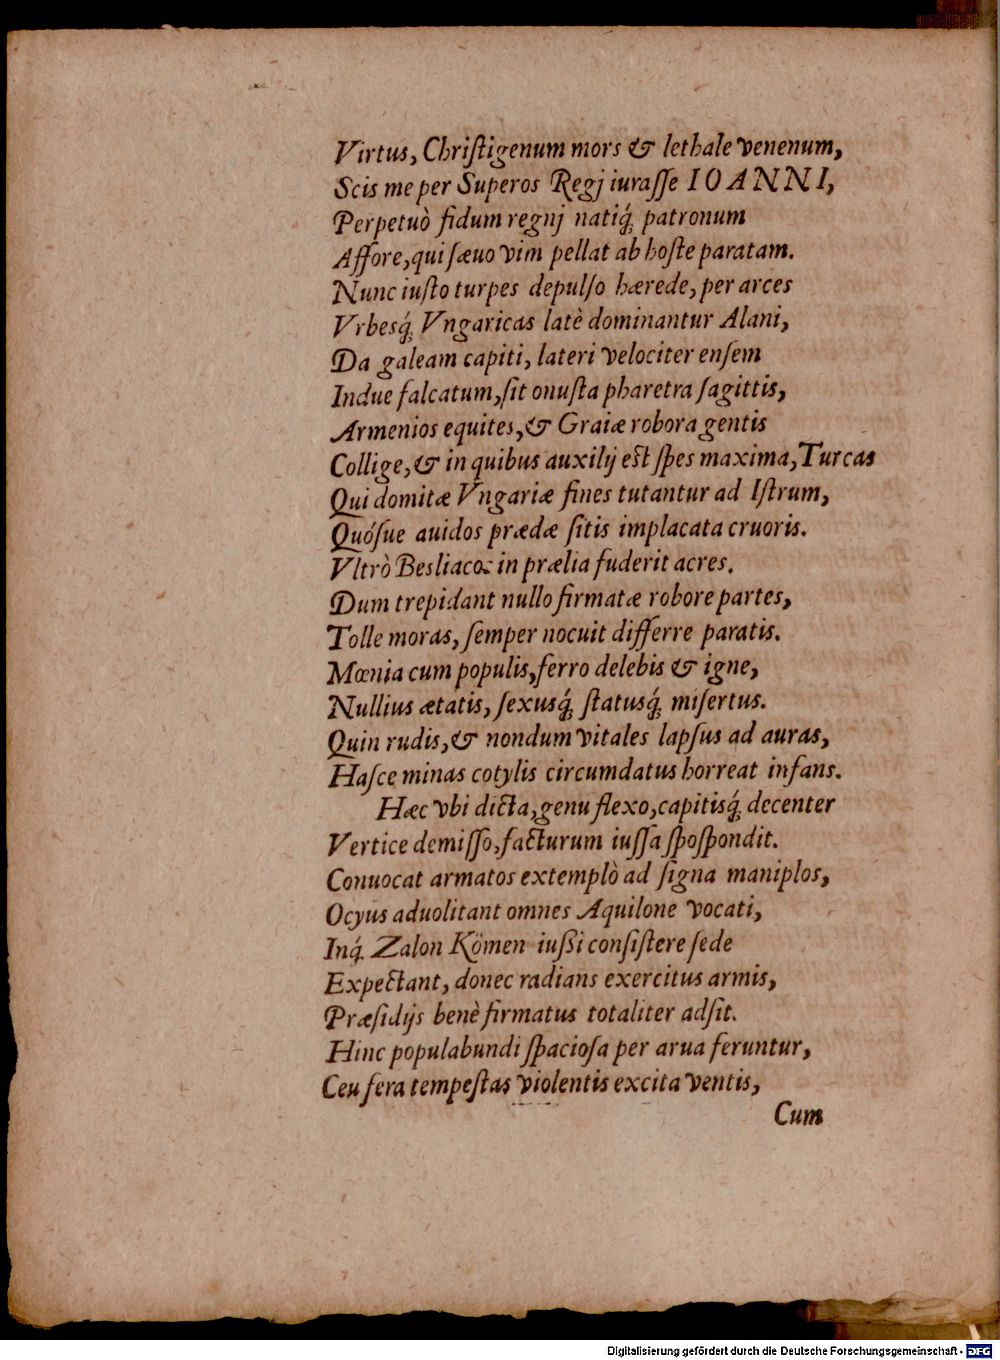 Virtus, Chriſtigenum mors & lethale venenum,
Scis me per Superos Regj iuraſſe IOANNI,
Perpetuò fidum regnj natiq́; patronum
Affore, qui ſæuo vim pellat ab hoſte paratam.
Nunc iuſto turpes depulſo hærede, per arces
Vrbesq́; Vngaricas latè dominantur Alani,
Da galeam capiti, lateri velociter enſem
Indue falcatum, ſit onuſta pharetra ſagittis,
Armenios equites, & Graiæ robora gentis
Collige, & in quibus auxilij eſt ſpes maxima, Turcas
Qui domitæ Vngariæ fines tutantur ad Iſtrum,
Quóſue auidos prædæ ſitis implacata cruoris.
Vltrò Besliacos in prælia fuderit acres.
Dum trepidant nullo firmatæ robore partes,
Tolle moras, ſemper nocuit differre paratis.
Mœnia cum populis, ferro delebis & igne,
Nullius ætatis, ſexusq́; ſtatusq́; miſertus.
Quin rudis, & nondum vitales lapſus ad auras,
Haſce minas cotylis circumdatus horreat infans.
Hæc vbi dicta, genu flexo, capitisq́; decenter
Vertice demiſſo, facturum iuſſa ſpoſpondit.
Conuocat armatos extemplò ad ſigna maniplos,
Ocyus aduolitant omnes Aquilone vocati,
Inq́; Zalon Kömen iußi conſiſtere ſede
Expectant, donec radians exercitus armis,
Præſidijs benè firmatus totaliter adſit.
Hinc populabundi ſpacioſa per arua feruntur,
Ceu fera tempeſtas violentis excita ventis,
Cum
Digitalisierung gefördert durch die Deutsche Forschungsgemeinschaft - DFG